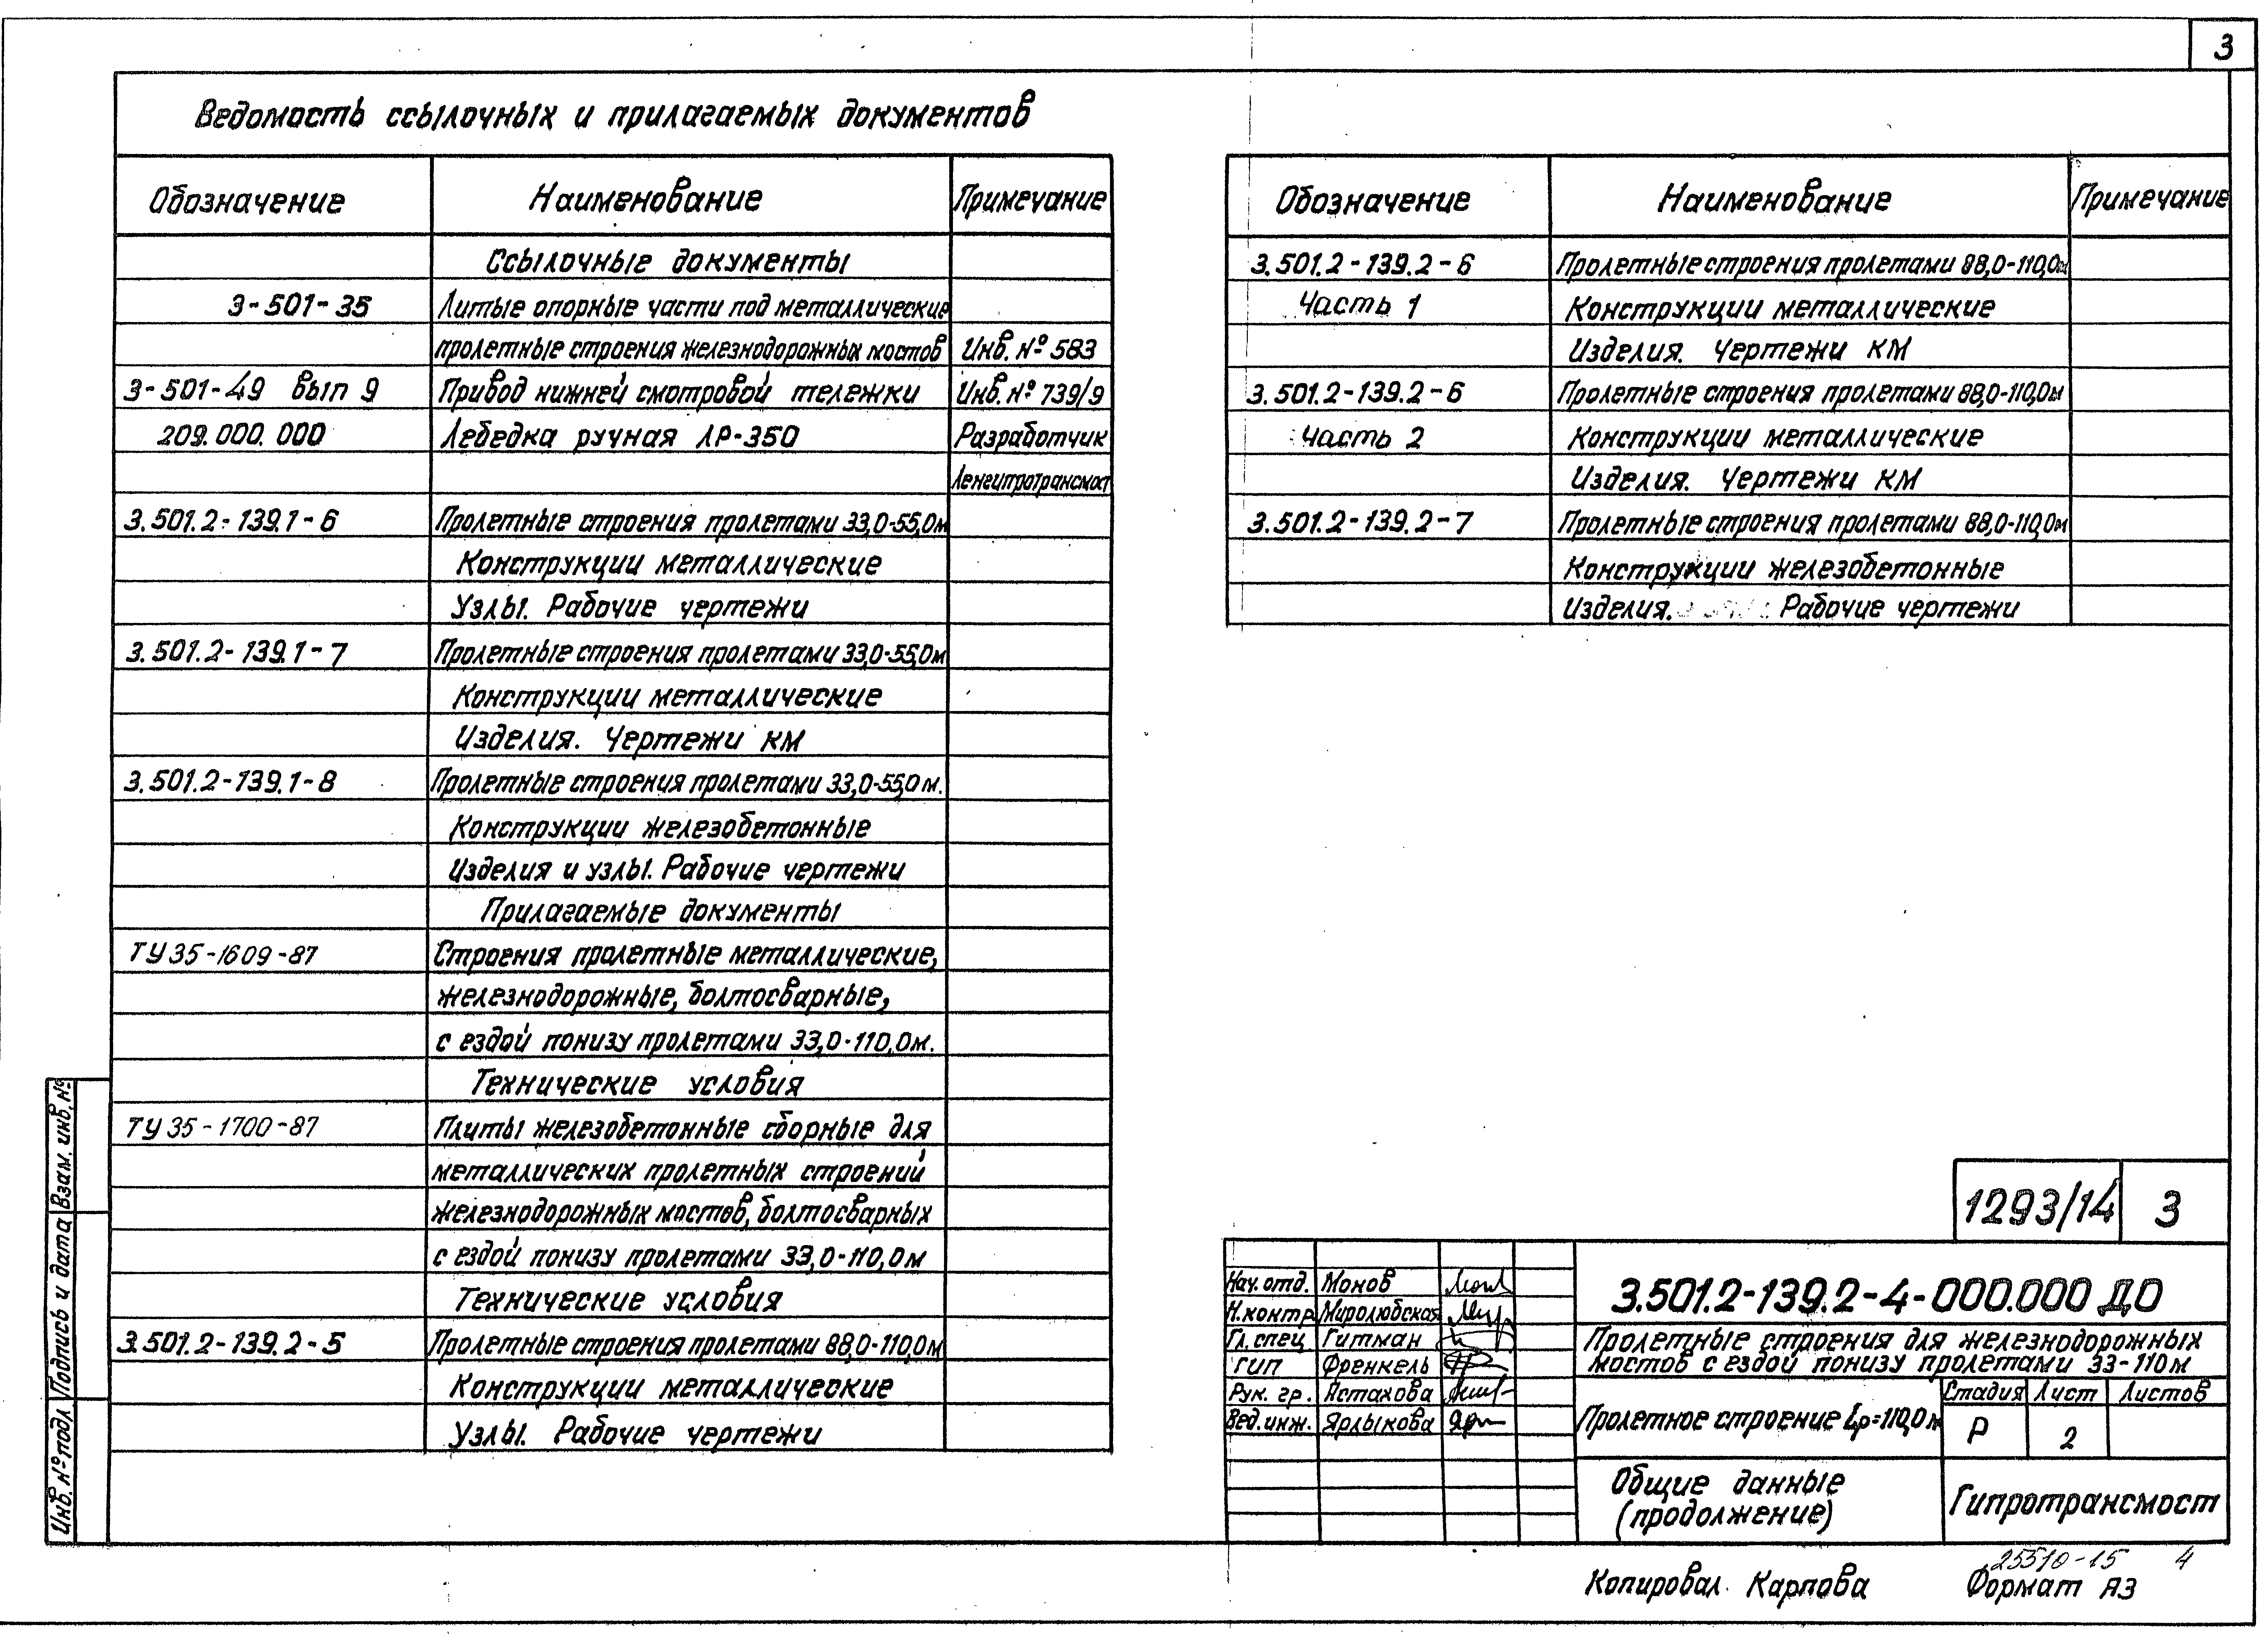 3
Ведомость ссылочных и прилагаемых документов
Обозначение Наименование Примечание
Ссылочные документы
3-501-35 Литые опорные части под металлические
пролетные строения железнодорожных мостов Инв. № 583
3-501-49 вып 9 Привод нижней смотровой тележки Инв. № 739/9
209.000.000 Лебедка ручная ЛР-350 Разработчик
Ленгипротрансмост
3.501.2-139.1-6 Пролетные строения пролетами 33,0-55,0м
Конструкции металлические
Узлы. Рабочие чертежи
3.501.2-139.1-7 Пролетные строения пролетами 33,0-55,0м
Конструкции металлические
Изделия. Чертежи КМ
3.501.2-139.1-8 Пролетные строения пролетами 33,0-55,0 м.
Конструкции железобетонные
Изделия и узлы. Рабочие чертежи
Прилагаемые документы
ТУ 35-1609-87 Строения пролетные металлические,
железнодорожные, болтосварные,
с ездой понизу пролетами 33,0-110,0м.
Технические условия
ТУ 35-1700-87 Плиты железобетонные сборные для
металлических пролетных строений
железнодорожных мостов, болтосварных
с ездой понизу пролетами 33,0-110,0м
Технические условия
3.501.2-139.2-5 Пролетные строения пролетами 88,0-110,0м
Конструкции металлические
Узлы. Рабочие чертежи
Обозначение Наименование Примечание
3.501.2-139.2-6 Пролетные строения пролетами 88,0-110,0м
Часть 1 Конструкции металлические
Изделия. Чертежи КМ
3.501.2-139.2-6 Пролетные строения пролетами 88,0-110,0м
Часть 2 Конструкции металлические
Изделия. Чертежи КМ
3.501.2-139.2-7 Пролетные строения пролетами 88,0-110,0м
Конструкции железобетонные
Изделия. Рабочие чертежи
Инв. № подл. Подпись и дата Взам. инв. №
1293/14 3
Нач. отд. Монов
Н.контр Миролюбская
Гл. спец Гитман
ГИП Френкель
Рук. гр. Астахова
Вед. инж. Ярлыкова
3.501.2-139.2-4-000.000 ДО
Пролетные строения для железнодорожных
мостов с ездой понизу пролетами 33-110м
Пролетное строение Lp=110,0 м
Стадия Лист Листов
Р 2
Общие данные
(продолжение)
Гипротрансмост
25510-15 4
Копировал Карпова Формат А3